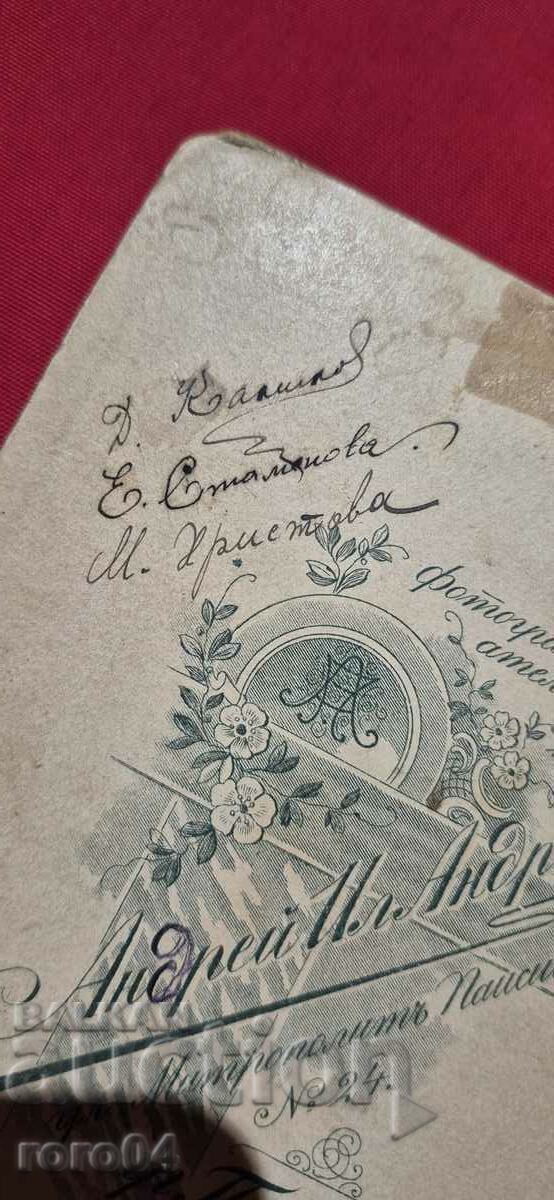 Д. Капинов
Е. Стаменова.
М. Христова
фотогра
ател
АА
Андрей Ил Андр
Митрополитъ Паиси
№ 24.
2
BALKAN
auction
roro04